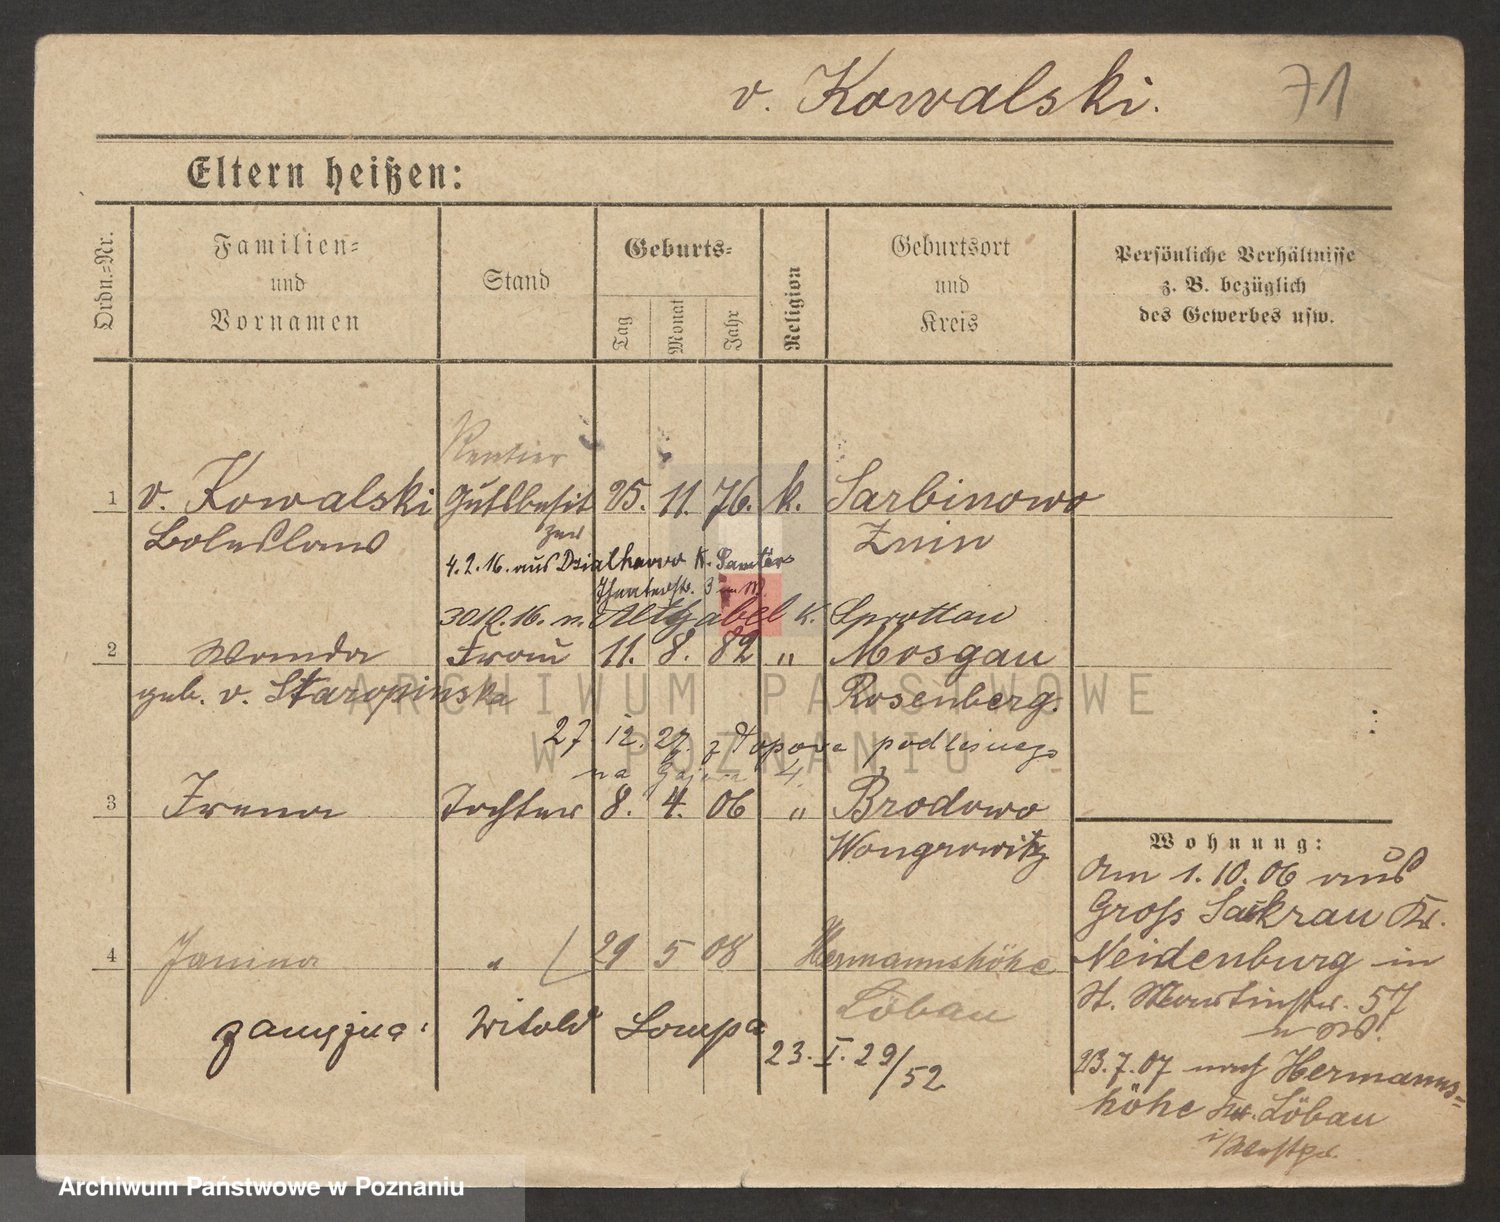 v. Kowalski. 71
Eltern heißen:
Ordn.=Nr.
Familien=
und
Vornamen
Stand
Geburts=
Tag
Monat
Jahr
Religion
Geburtsort
und
Kreis
Persönliche Verhältnisse
z. B. bezüglich
des Gewerbes usw.
Rentier
1 v. Kowalski Gutsbesit 25. 11. 76. k. Sarbinowo
Boleslaus zer Znin
4.2.16. aus Dzialhowo K.
Theaterstr. 3
30.12.16. n. Altgabel K. Sprottau
2 Wanda Frau 11. 8. 82 " Mosgau
geb. v. Staropinska Rosenberg.
27. 12. 27. z Topova podlesnego
na
3 Irena Tochter 8. 4. 06 " Brodowo
Wongrowitz
Wohnung:
Am 1.10.06 aus
Gross Sackrau Kr.
Neidenburg in
St. Martinstr. 57
23.7.07 nach Hermanns=
höhe Kr. Löbau
i/Westpr.
4 Janina " 29 5 08 Hermannshöhe
Löbau
zamężna: Witold Lompa
23. I. 29/52
ARCHIWUM PAŃSTWOWE
W POZNANIU
Archiwum Państwowe w Poznaniu